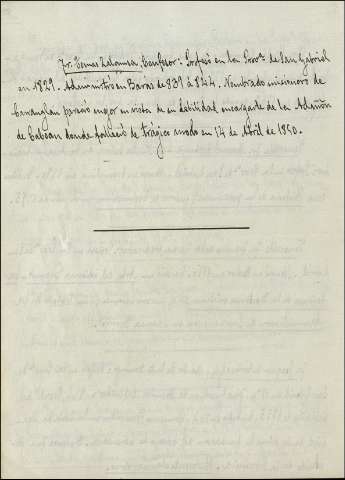 Fr. Tomas Zalamea, Confesor: Profesó en la Prov.ª de San Gabriel
en 1829. Administró en Baras de 839 á 844. Nombrado misionero de
pareció mejor en vista de su debilidad encargarle de la Admón
de Caboan donde falleció de trágico modo en 14 de Abril de 1850.